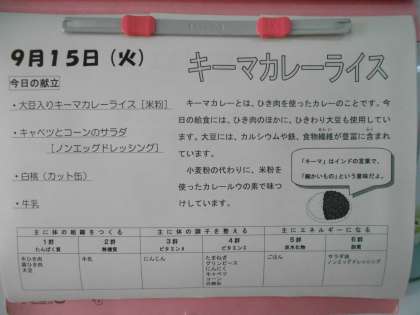 9月15日（火）
キーマカレーライス
今日の献立
・大豆入りキーマカレーライス［米粉］
・キャベツとコーンのサラダ
［ノンエッグドレッシング］
・白桃（カット缶）
・牛乳
キーマカレーとは、ひき肉を使ったカレーのことです。今
日の給食には、ひき肉のほかに、ひきわり大豆も使用してい
ます。大豆には、カルシウムや鉄、食物繊維が豊富に含まれ
ています。
小麦粉の代わりに、米粉を
使ったカレールウの素で味つ
けしています。
「キーマ」はインドの言葉で、
「細かいもの」という意味だよ。
主に体の組織をつくる
主に体の調子を整える
主にエネルギーになる
1群 2群 3群 4群 5群 6群
たんぱく質 無機質 ビタミンA ビタミンC 炭水化物 脂質
牛ひき肉
豚ひき肉
大豆
牛乳
にんじん
たまねぎ
グリンピース
にんにく
キャベツ
コーン
ごはん
サラダ油
ノンエッグドレッシング